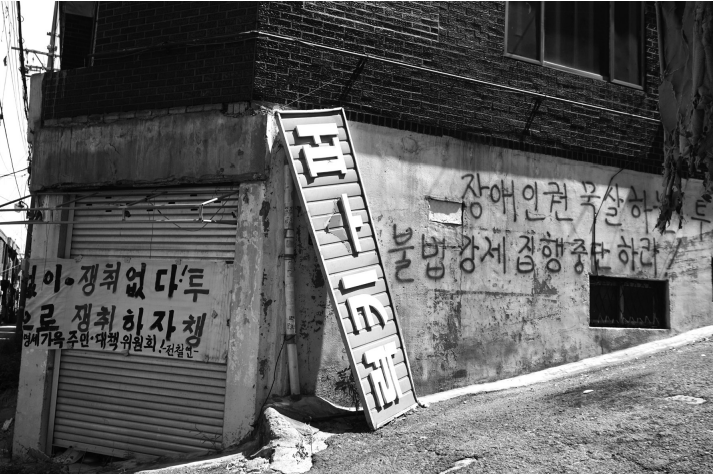 없이-쟁취없다!투
으로 쟁취하자쟁
주민·대책위원회!-전철연-
장애인권 묵살하는 투
불법강제집행중단하라!